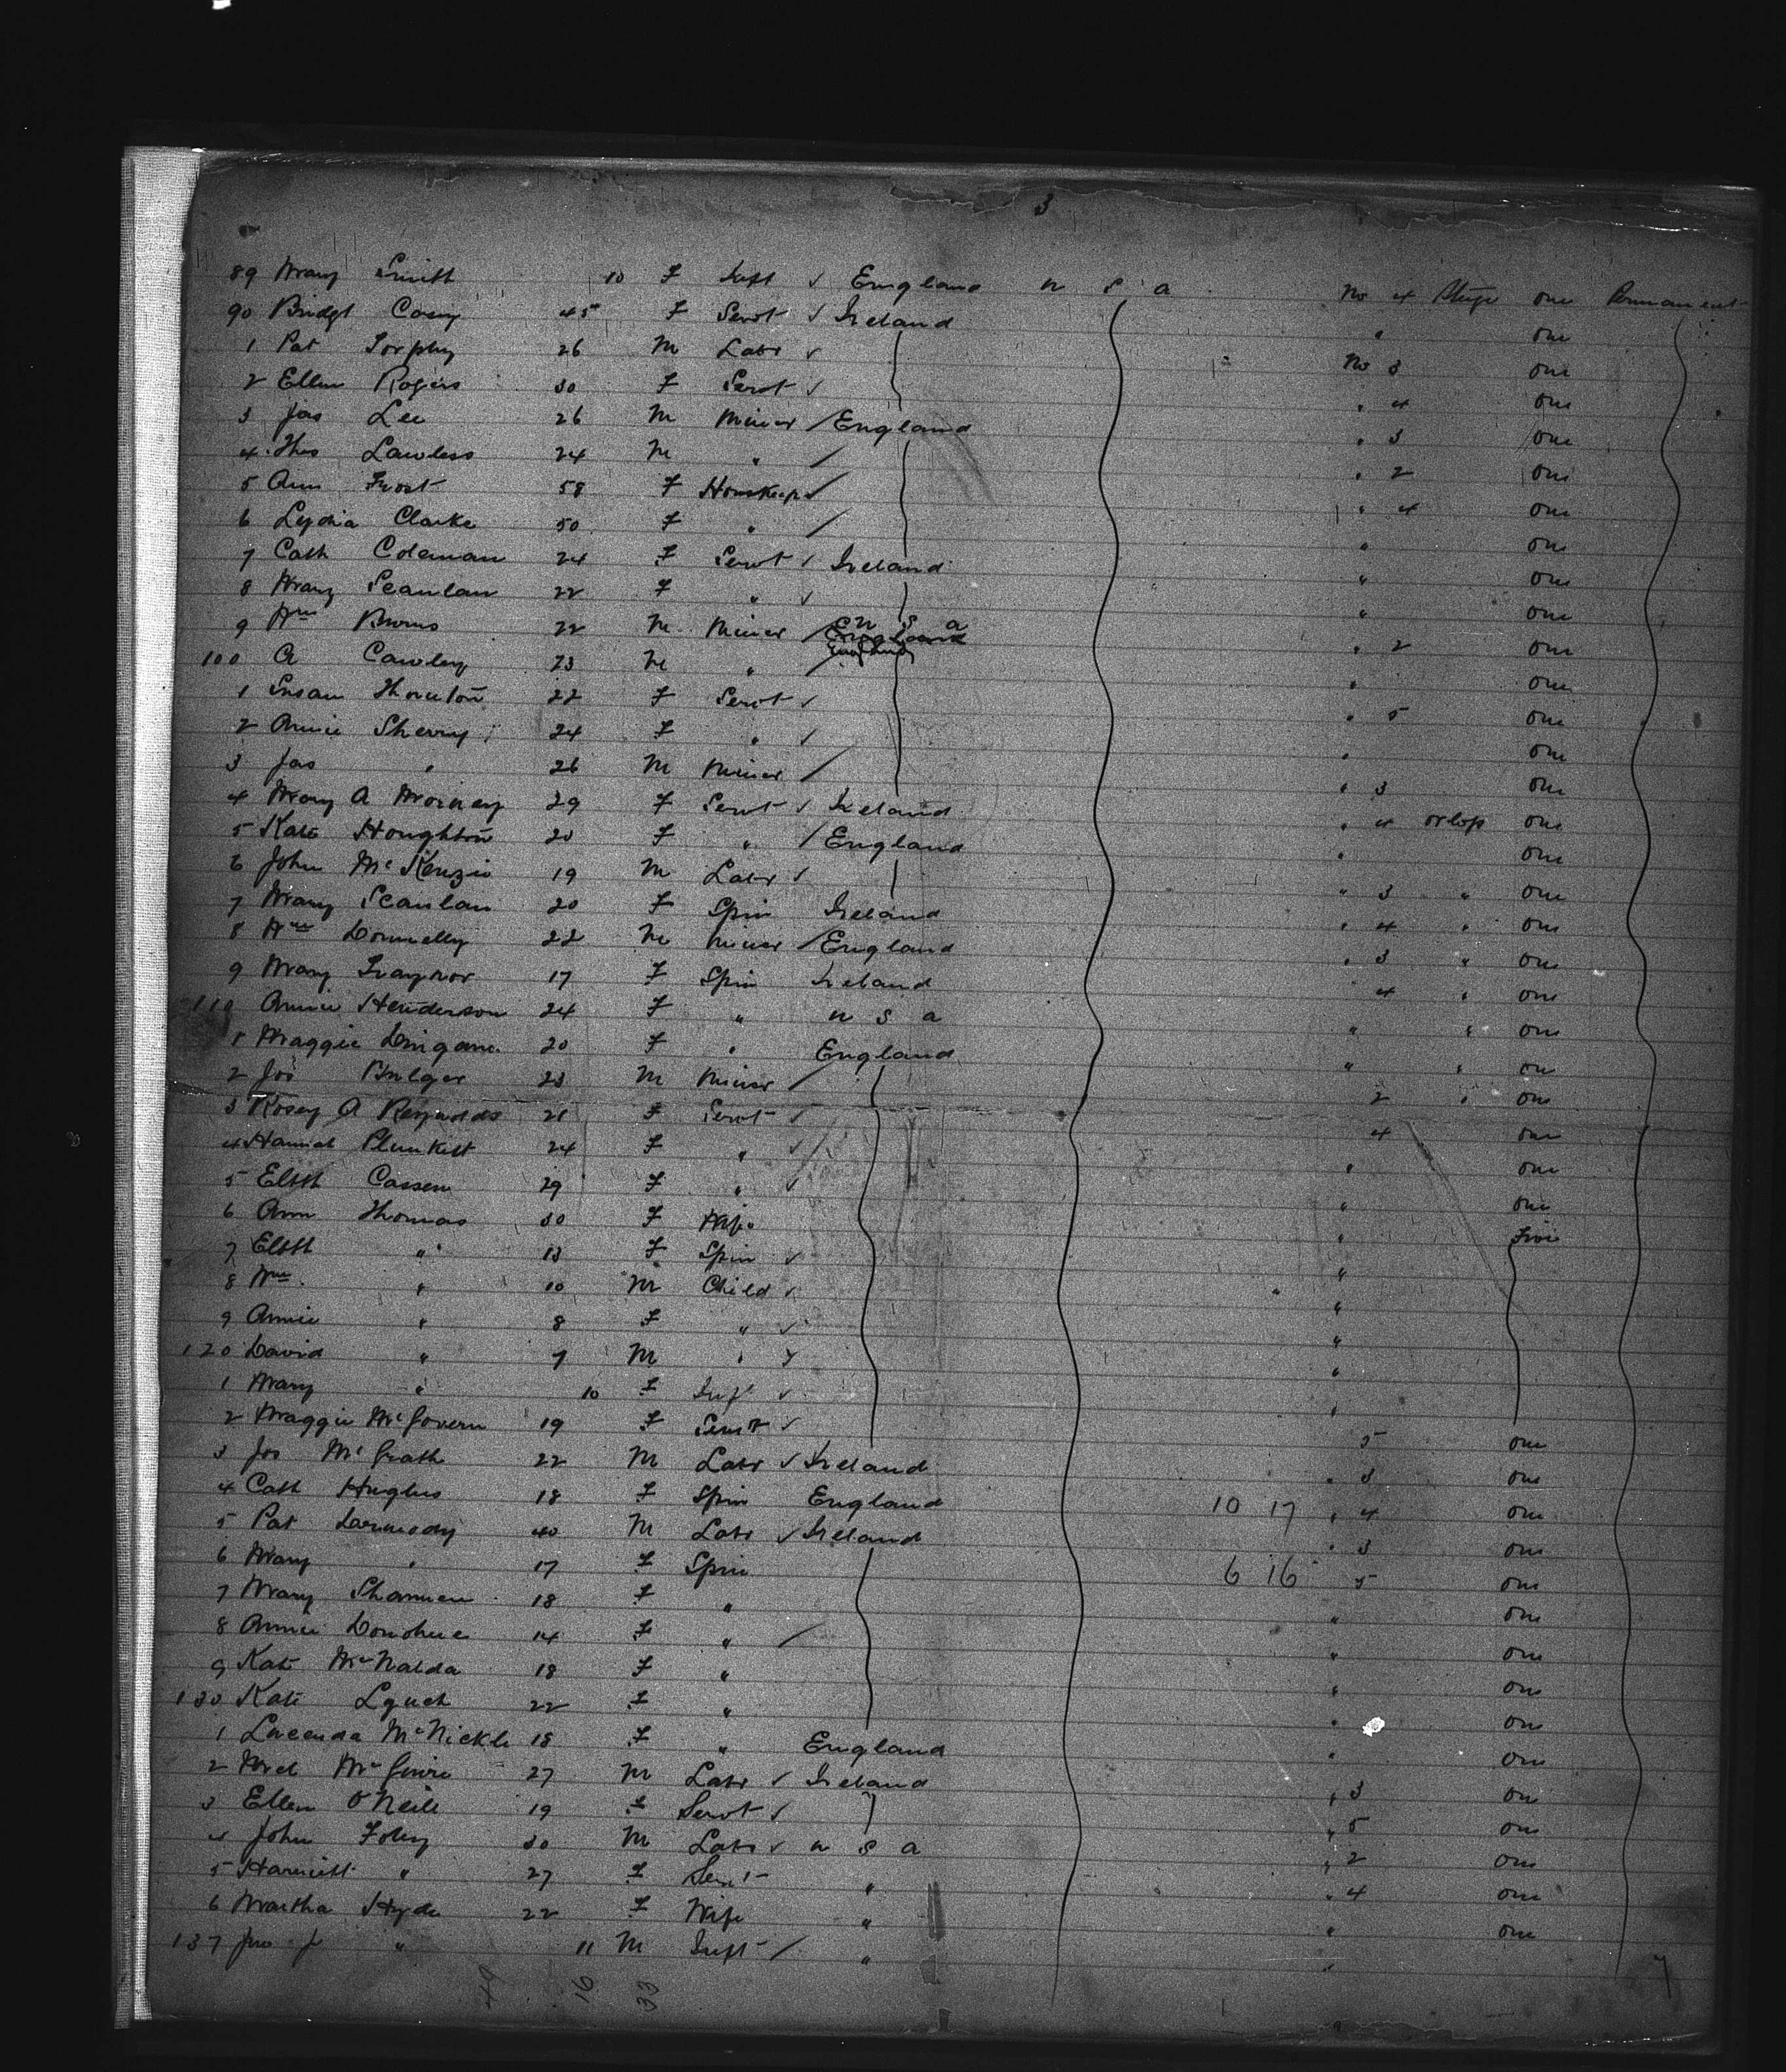 3
89 Mary Smith 10 F Inft ✓ England U S A No 4 Stge one Permanent
90 Bridgt Casey 45 F Servt ✓ Ireland " one
1 Pat Torphy 26 M Labr ✓ No 3 one
2 Ellen Rogers 30 F Servt ✓ " 4 one
3 Jas Lee 26 M Miner / England " 3 one
4 Thos Lawless 24 M " / " 2 one
5 Ann Frost 58 F Houskeepr ✓ " 4 one
6 Lydia Clarke 50 F " / " one
7 Cath Coleman 24 F Servt ✓ Ireland " one
8 Mary Scanlan 22 F " ✓ " one
9 Wm Burns 22 M Miner / U S A " 2 one
100 A Cawley 23 M " / England " one
1 Susan Thornton 22 F Servt ✓ " 5 one
2 Annie Sherry 24 F " ✓ " one
3 Jas " 26 M Miner / " 3 one
4 Mary A Morney 29 F Servt ✓ Ireland " 4 orlop one
5 Kate Houghton 20 F " / England " one
6 John McKenzie 19 M Labr ✓ " 3 " one
7 Mary Scanlan 20 F Spin Ireland " 4 " one
8 Wm Donnelly 22 M Miner / England " 3 " one
9 Mary Traynor 17 F Spin Ireland 4 " one
110 Annie Henderson 24 F " U S A " " one
1 Maggie Dingane 20 F " England " " on
2 Jos Bulger 23 M Miner / 2 " one
3 Rosey A Reynolds 21 F Servt ✓ 4 one
4 Hannah Plunkett 24 F " ✓ " one
5 Elzth Cassen 29 F " ✓ " one
6 Ann Thomas 30 F Wife " Five
7 Elzth " 13 F Spin ✓ "
8 Wm " 10 M Child ✓ "
9 Annie " 8 F " ✓ "
120 David " 7 M " ✓ "
1 Mary " 10 F Inft ✓ "
2 Maggie McGovern 19 F Servt ✓ 5 one
3 Jos McGrath 22 M Labr ✓ Ireland " 3 one
4 Cath Hughes 18 F Spin England 10 17 " 4 one
5 Pat Darmody 40 M Labr ✓ Ireland " 3 one
6 Mary " 17 F Spin 6 16 5 one
7 Mary Shannen 18 F " " one
8 Annie Donohue 14 F " / " one
9 Kate McNalda 18 F " " one
130 Kate Lynch 22 F " " on
1 Lucenda McNickle 18 F " England " one
2 Mcl McGuire 27 M Labr ✓ Ireland " 3 on
3 Ellen O'Neill 19 F Servt ✓ " 5 one
4 John Foley 30 M Labr ✓ U S A " 2 one
5 Harriett " 27 F Servt " " 4 one
6 Martha Hyde 22 F Wife " " one
137 Jno J " 11 M Inft / " "
49 16 33
7